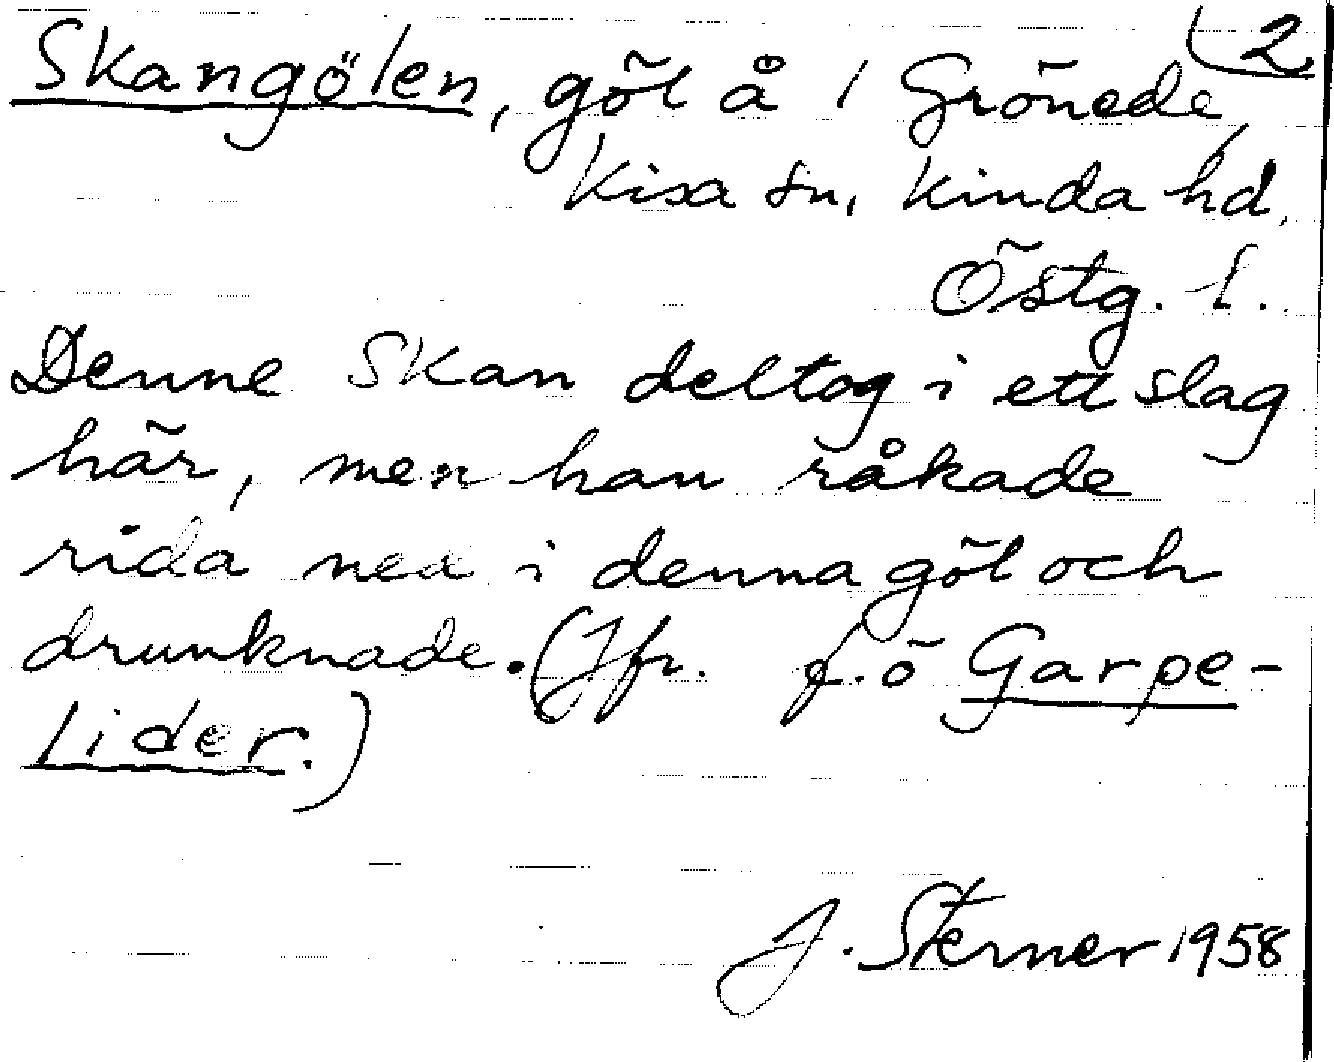 2
Skangölen, göl å 1 Grönede,
Kisa sn, Kinda hd.
Östg. l.
Denne Skan deltog i ett slag
här, men han råkade
rida ned i denna göl och
drunknade. (Jfr. f.ö Garpe-
lider.)
J. Sterner 1958